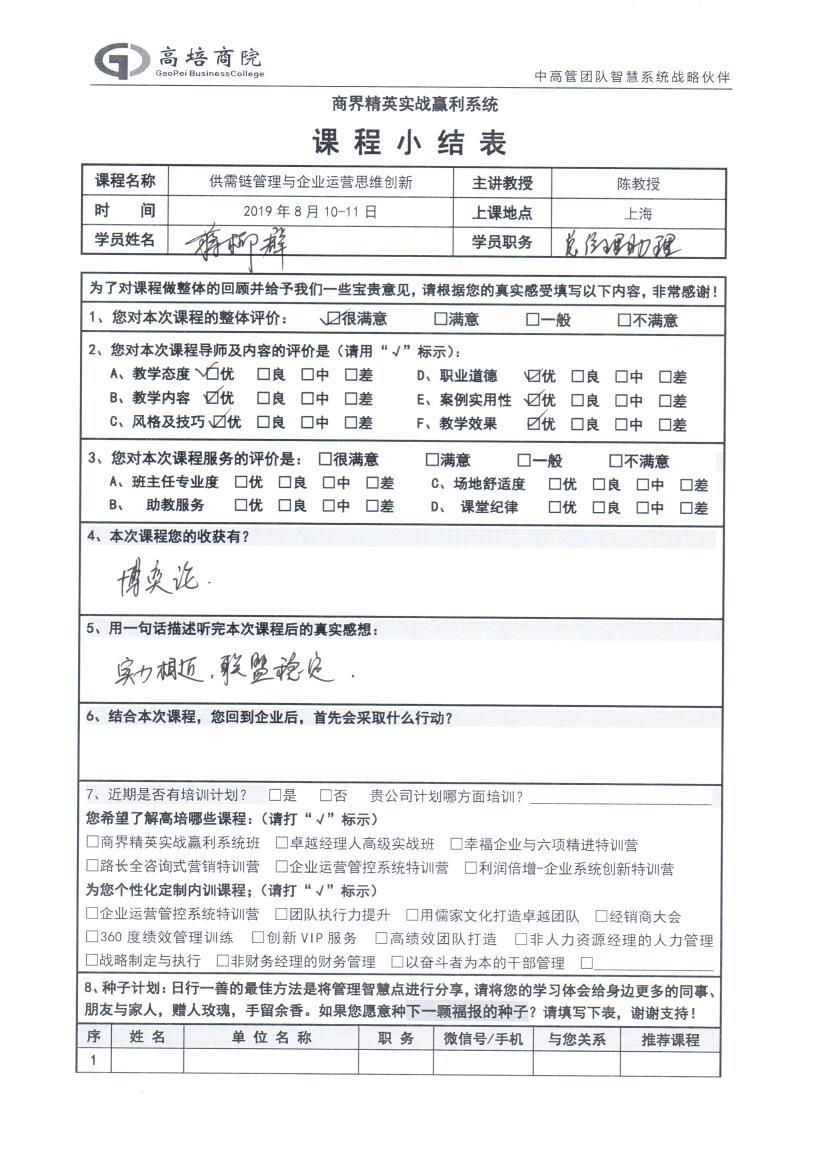 高培商院
GaoPei BusinessCollege
中高管团队智慧系统战略伙伴
商界精英实战赢利系统
课程小结表
课程名称 供需链管理与企业运营思维创新 主讲教授 陈教授
时 间 2019年8月10-11日 上课地点 上海
学员姓名 蒋柳群 学员职务 总经理助理
为了对课程做整体的回顾并给予我们一些宝贵意见,请根据您的真实感受填写以下内容,非常感谢!
1、您对本次课程的整体评价: ☑很满意 □满意 □一般 □不满意
2、您对本次课程导师及内容的评价是(请用“√”标示):
A、教学态度 ☑优 □良 □中 □差 D、职业道德 ☑优 □良 □中 □差
B、教学内容 ☑优 □良 □中 □差 E、案例实用性 ☑优 □良 □中 □差
C、风格及技巧 ☑优 □良 □中 □差 F、教学效果 ☑优 □良 □中 □差
3、您对本次课程服务的评价是: □很满意 □满意 □一般 □不满意
A、班主任专业度 □优 □良 □中 □差 C、场地舒适度 □优 □良 □中 □差
B、 助教服务 □优 □良 □中 □差 D、 课堂纪律 □优 □良 □中 □差
4、本次课程您的收获有?
博奕论.
5、用一句话描述听完本次课程后的真实感想:
实力相近,联盟稳定.
6、结合本次课程,您回到企业后,首先会采取什么行动?
7、近期是否有培训计划? □是 □否 贵公司计划哪方面培训?
您希望了解高培哪些课程:(请打“√”标示)
□商界精英实战赢利系统班 □卓越经理人高级实战班 □幸福企业与六项精进特训营
□路长全咨询式营销特训营 □企业运营管控系统特训营 □利润倍增-企业系统创新特训营
为您个性化定制内训课程;(请打“√”标示)
□企业运营管控系统特训营 □团队执行力提升 □用儒家文化打造卓越团队 □经销商大会
□360度绩效管理训练 □创新VIP服务 □高绩效团队打造 □非人力资源经理的人力管理
□战略制定与执行 □非财务经理的财务管理 □以奋斗者为本的干部管理 □
8、种子计划:日行一善的最佳方法是将管理智慧点进行分享,请将您的学习体会给身边更多的同事、
朋友与家人,赠人玫瑰,手留余香。如果您愿意种下一颗福报的种子?请填写下表,谢谢支持!
序 姓名 单位名称 职务 微信号/手机 与您关系 推荐课程
1